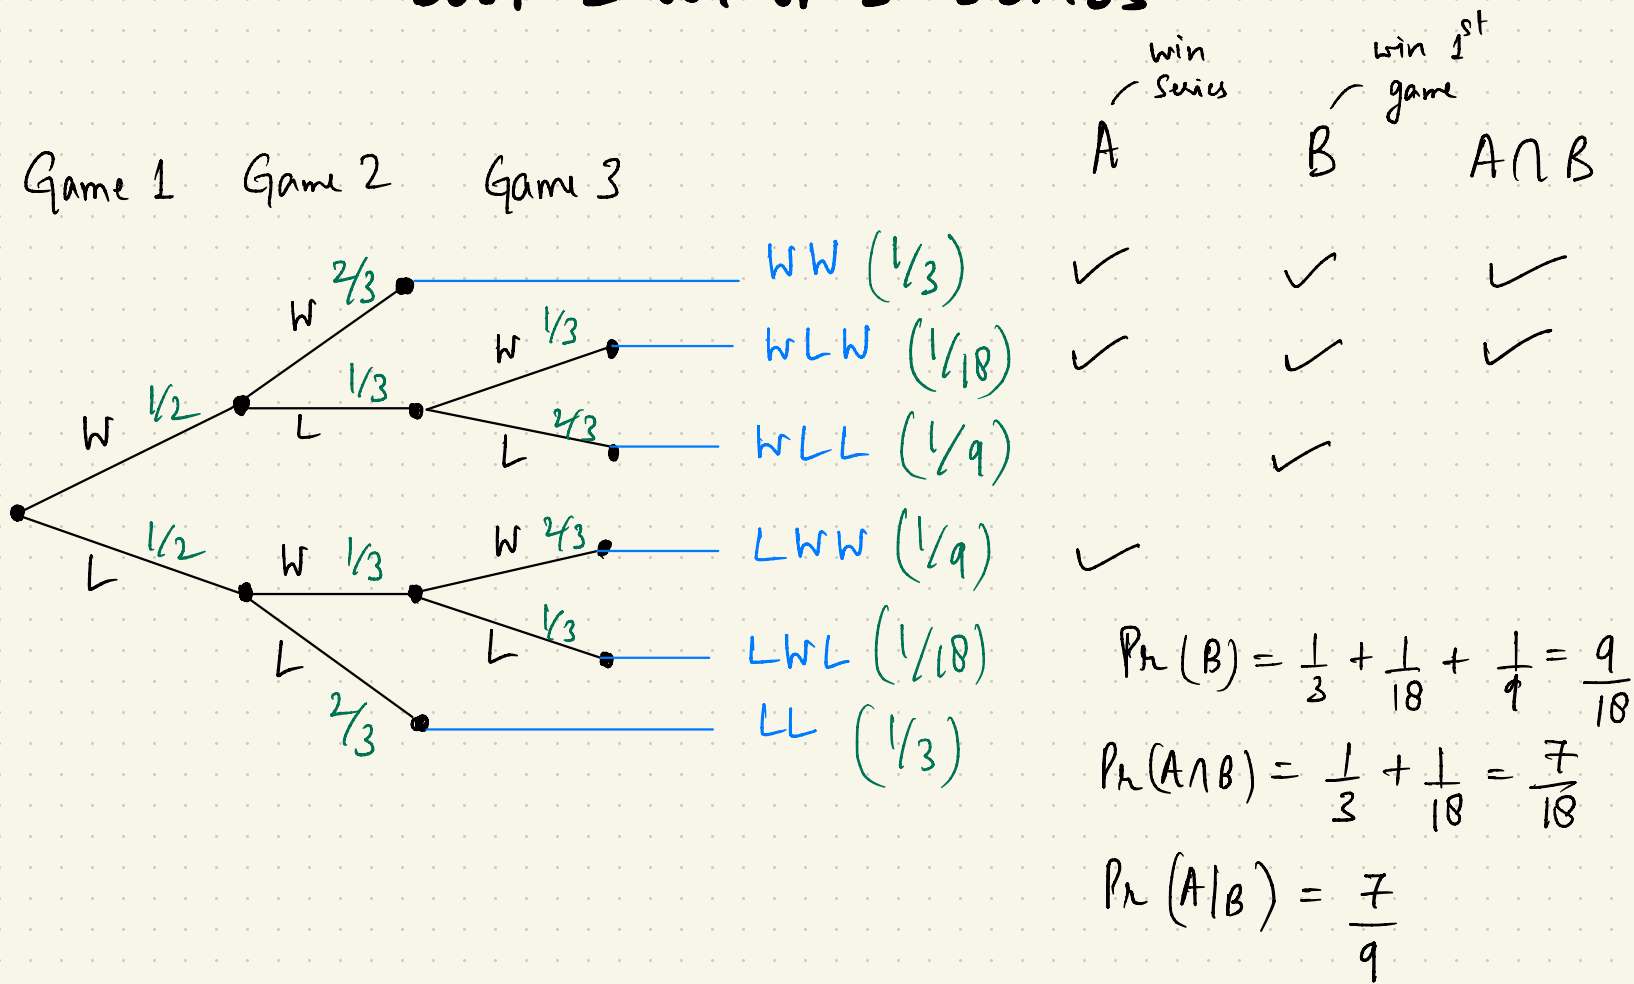 win series
win 1st game
A B A∩B
Game 1 Game 2 Game 3
W 1/2
L 1/2
W 2/3
L 1/3
W 1/3
L 2/3
W 1/3
L 2/3
W 2/3
L 1/3
WW (1/3) ✓ ✓ ✓
WLW (1/18) ✓ ✓ ✓
WLL (1/9) ✓
LWW (1/9) ✓
LWL (1/18)
LL (1/3)
Pr(B) = 1/3 + 1/18 + 1/9 = 9/18
Pr(A∩B) = 1/3 + 1/18 = 7/18
Pr(A|B) = 7/9